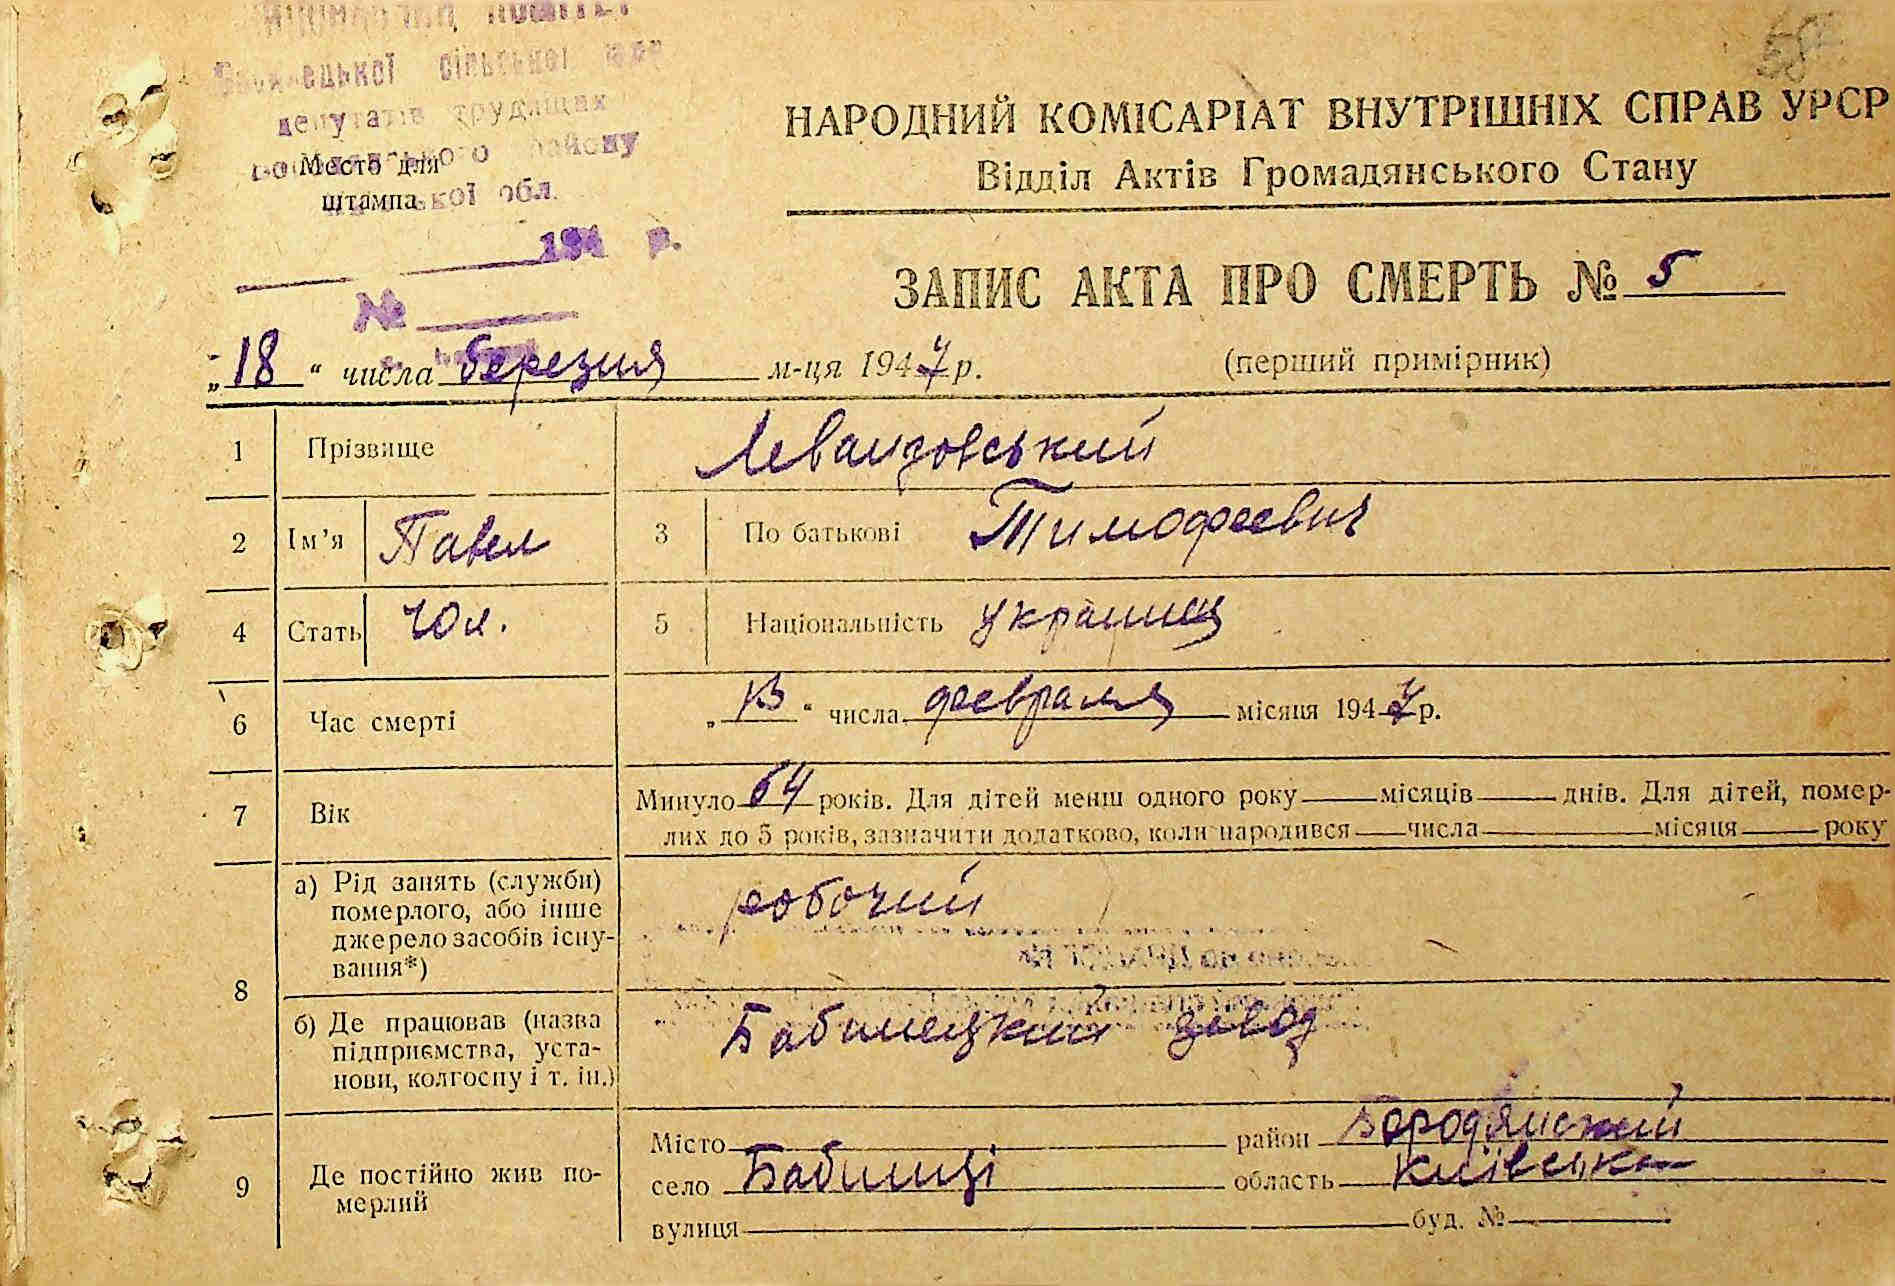 сільської
депутатів трудящих
району
Место для
штампа
обл.
194 р.
№
НАРОДНИЙ КОМІСАРІАТ ВНУТРІШНІХ СПРАВ УРСР
Відділ Актів Громадянського Стану
ЗАПИС АКТА ПРО СМЕРТЬ № 5
„18“ числа березня м-ця 1947 р.
(перший примірник)
1 Прізвище
2 Ім’я Павел 3 По батькові Тимофеевич
4 Стать Чол. 5 Національність украинец
6 Час смерті „13“ числа февраля місяця 1947 р.
7 Вік Минуло 64 років. Для дітей менш одного року місяців днів. Для дітей, помер-
лих до 5 років, зазначити додатково, коли народився числа місяця року
8 а) Рід занять (служби) робочий
померлого, або інше
джерело засобів існу-
вання*)
б) Де працював (назва Бабинецкий завод
підприємства, уста-
нови, колгоспу і т. ін.)
9 Де постійно жив по-
мерлий
Місто район Бородянский
село Бабинці область Київська
вулиця буд. №